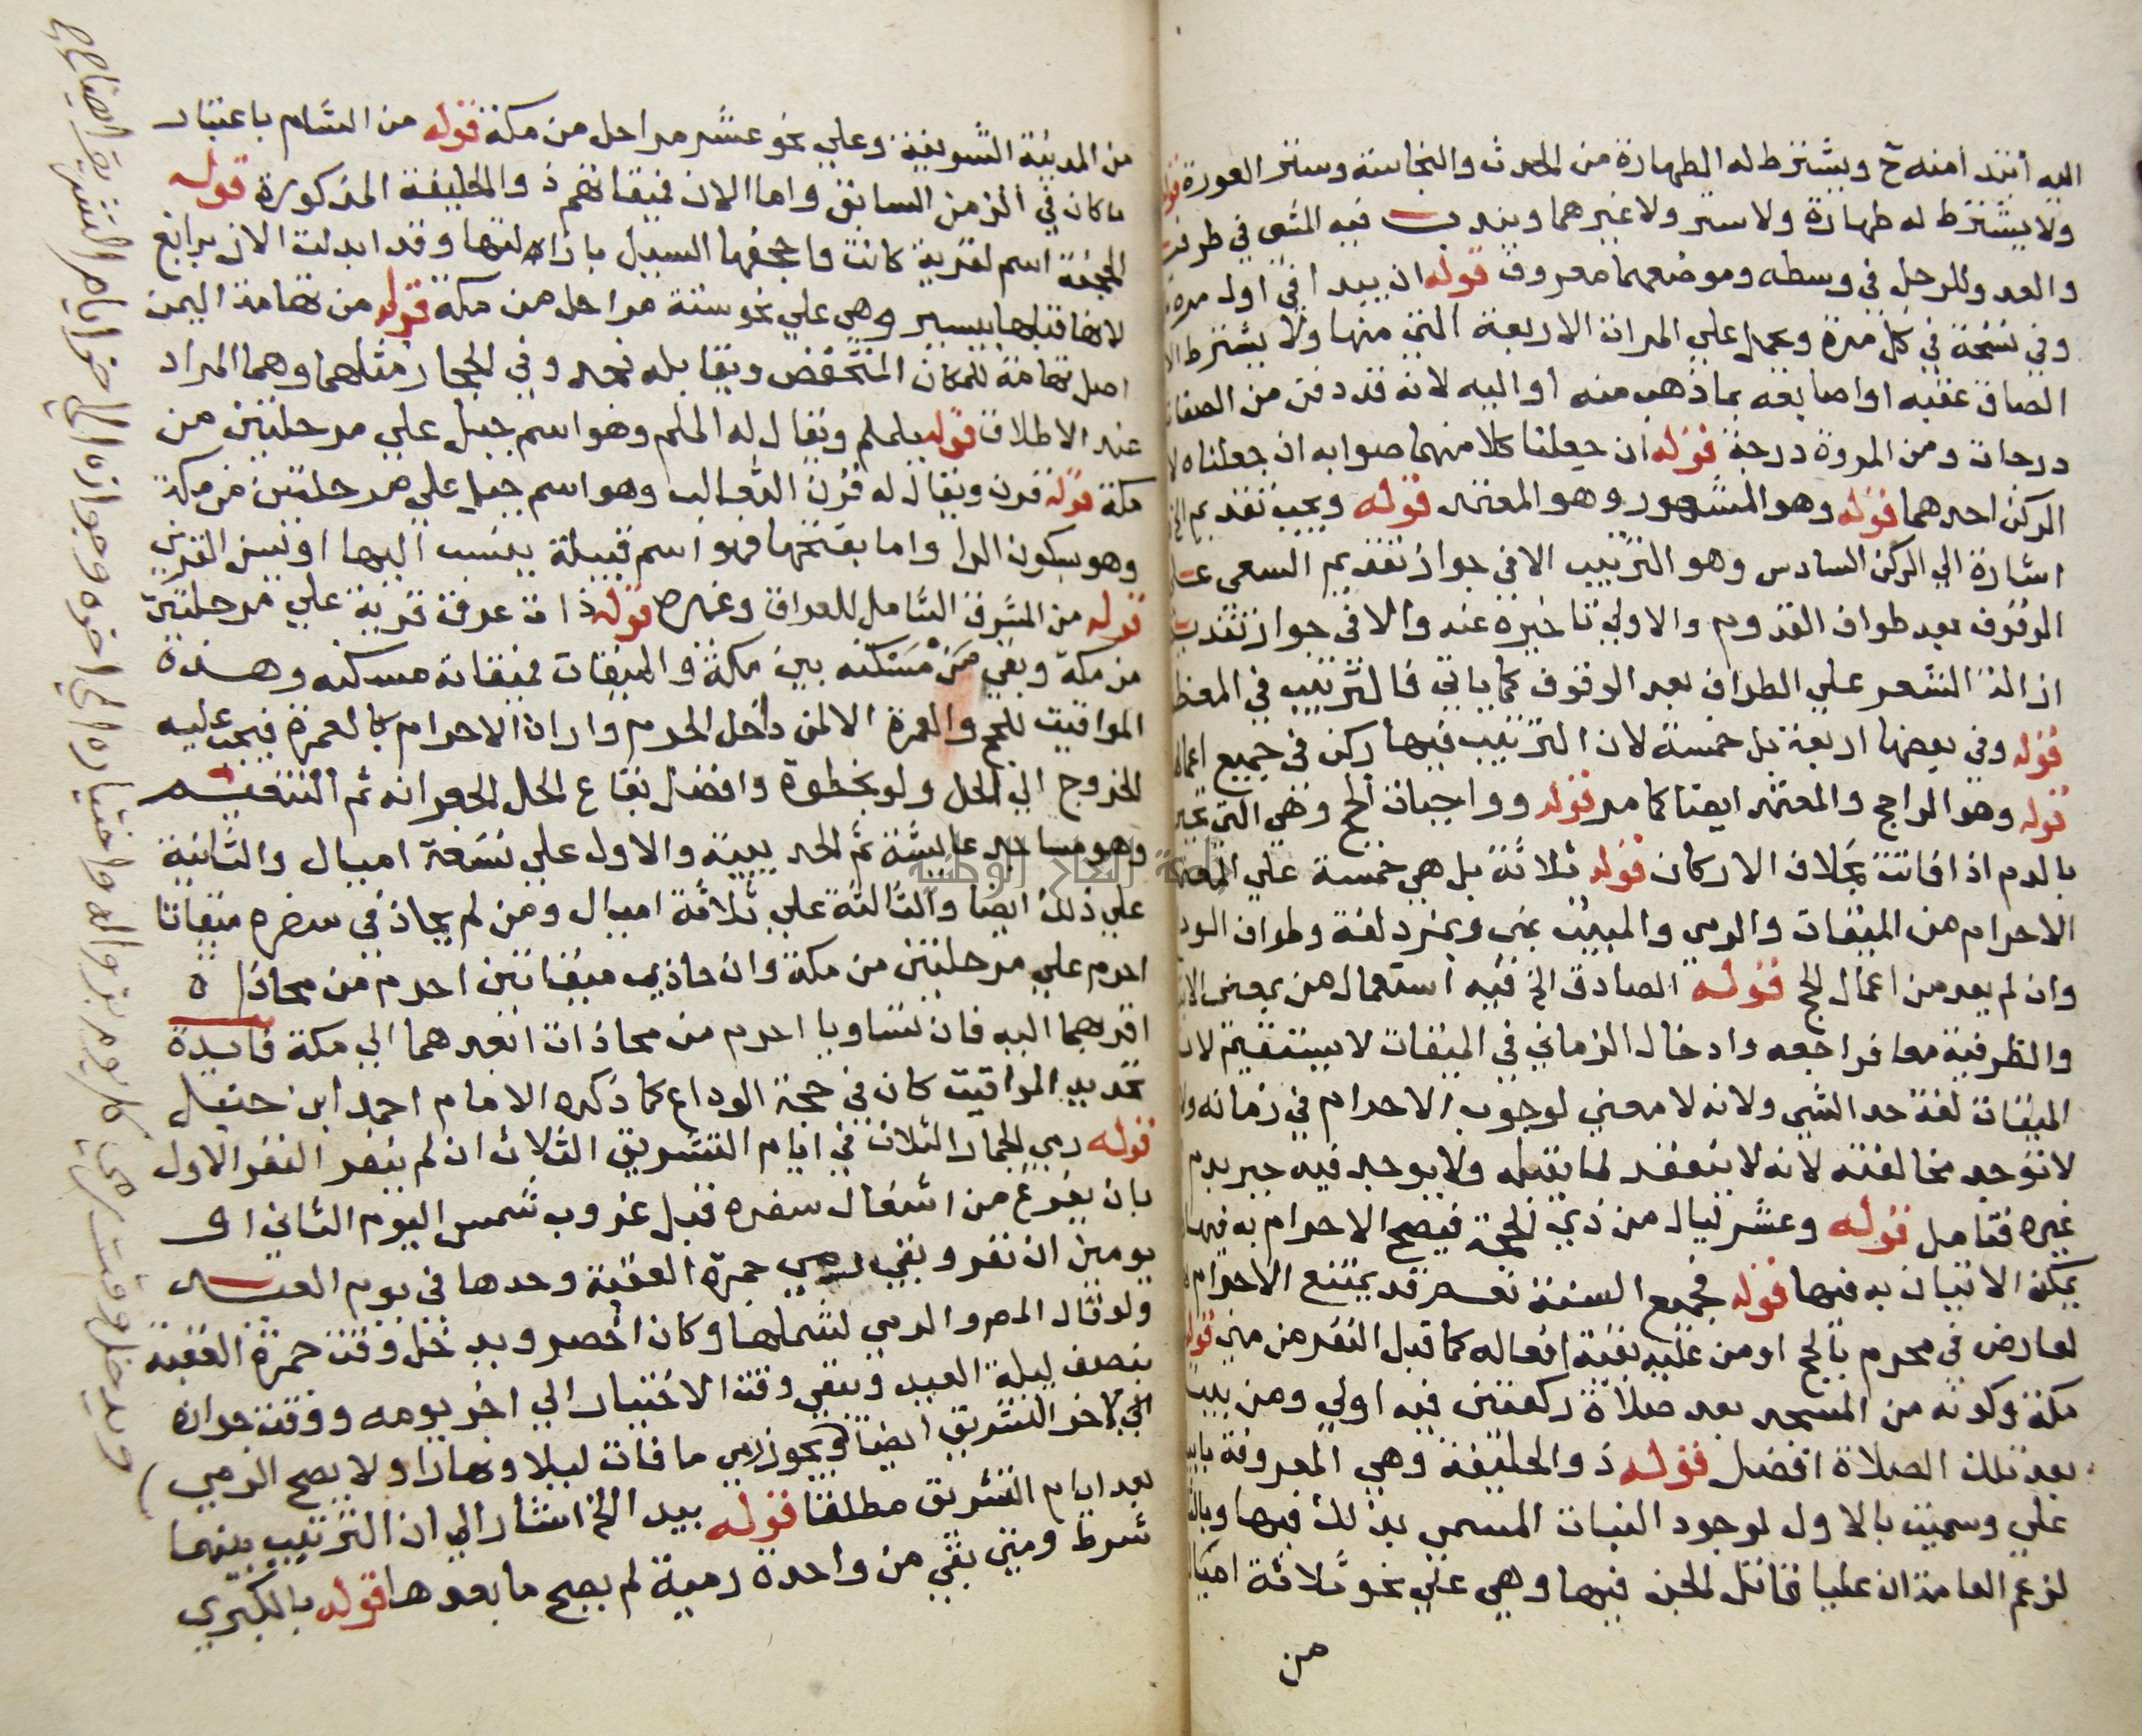 اليه أثند امنه ح ويشترط له الطهارة من الحدث والنجاسة وستر العورة قوله
ولا يشترط له طهارة ولا ستر ولا غيرهما ويندب فيه المشي في طرفيه
والعدو للرجل في وسطه وموضعهما معروف قوله ان يبدا في اول مرة
وفي نسخة في كل مرة ويحمل علي المرات الاربعة التي منها ولا يشترط
الصاق عقبه او اصابعه بما ذهب منه او اليه لانه قد دفن من الصفا
درجات ومن المروة درجة قوله ان جعلنا كلا منهما صوابه ان جعلناه
الركن احدهما قوله وهو المشهور وهو المعتمد قوله ويجب تقديم الخ
اشارة الي الركن السادس وهو الترتيب الا في جواز تقديم السعي علي
الوقوف بعد طواف القدوم والاولي تاخيره عنه والا في جواز تقديم
ازالة الشعر علي الطواف بعد الوقوف كما ياتي فالترتيب في المعظم
قوله وفي بعضها اربعة بل خمسة لان الترتيب فيها ركن في جميع اعمالها
قوله وهو الراجح والمعتمد ايضا كما مر قوله وواجبات الحج وهي التي تجبر
بالدم اذا فاتت بخلاف الاركان قوله ثلاثة بل هي خمسة علي المعتمد
الاحرام من الميقات والرمي والمبيت بمنى وبمزدلفة وطواف الوداع
وان لم يعد من اعمال الحج قوله الصادق الخ فيه استعمال من بمعنى
والظرفية معا فراجعه وادخال الزماني في الميقات لا يستقيم لان
الميقات لغة حد الشي ولانه لا معني لوجوب الاحرام في زمانه
لا توجد مخالفته لانه لا ينعقد لما يقبله ولا يوجد فيه جبر بدم
غيره فتامل قوله وعشر ليال من ذي الحجة فيصح الاحرام به فيها
يمكن الاتيان به فيها قوله فجميع السنة نعم قد يمتنع الاحرام
لعارض في محرم بالحج او من عليه بقية افعاله كما قبل النفر من مني قوله
مكة وكونه من المسجد بعد صلاة ركعتين فيه اولي ومن بيت
بعد تلك الصلاة افضل قوله ذو الحليفة وهي المعروفة بابيار
علي وسميت بالاول لوجود النبات المسمى بذلك فيها وبالثاني
لزعم العامة ان عليا قاتل الجن فيها وهي علي نحو ثلاثة اميال
من
من المدينة الشريفة وعلي نحو عشر مراحل من مكة قوله من الشام باعتبار
ما كان في الزمن السابق واما الان فميقاتهم ذو الحليفة المذكورة قوله
الجحفة اسم لقرية كانت واجحفها السيل بازالتها وقد ابدلت الان برابغ
لانها قبلها بيسير وهي علي نحو ستة مراحل من مكة قوله من تهامة اليمن
اصل تهامة للمكان المنخفض ويقابله نجد وفي الحجاز مثلهما وهما المراد
عند الاطلاق قوله يلملم ويقال له الملم وهو اسم جبل علي مرحلتين من
مكة قوله قرن ويقال له قرن الثعالب وهو اسم جبل علي مرحلتين من مكة
وهو بسكون الرا واما بفتحها فهو اسم قبيلة ينسب اليها اويس القرني
قوله من المشرق الشامل للعراق وغيرها قوله ذات عرق قرية علي مرحلتين
من مكة وبقي من مسكنه بين مكة والميقات فميقاته مسكنه وهذه
المواقيت للحج والعمرة الا لمن داخل الحرم واراد الاحرام بالعمرة فيجب عليه
الخروج الي الحل ولو بخطوة وافضل بقاع الحل الجعرانة ثم التنعيم
وهو مساجد عايشة ثم الحديبية والاول علي تسعة اميال والثانية
علي ذلك ايضا والثالثة علي ثلاثة اميال ومن لم يحاذ في سفره ميقاتا
احرم علي مرحلتين من مكة وان حاذي ميقاتين احرم من محاذاة
اقربهما اليه فان تساويا احرم من محاذات ابعدهما الي مكة فايدة
تحديد المواقيت كان في حجة الوداع كما ذكره الامام احمد ابن حنبل
قوله رمي الجمار الثلاث في ايام التشريق الثلاث ان لم ينفر النفر الاول
بان يفرغ من اشغال سفره قبل غروب شمس اليوم الثاني او
يومين ان نفر وبقي رمي جمرة العقبة وحدها في يوم العيد
ولو قال المص والرمي لشملها وكان اخصر ويدخل وقت جمرة العقبة
بنصف ليلة العيد ويبقي وقت الاختيار الي اخر يومه ووقت جوازه
الي اخر التشريق ايضا ويجوز رمي ما فات ليلا ونهارا ولا يصح الرمي
بعد ايام التشريق مطلقا قوله بيد الخ اشار الي ان الترتيب بينهما
شرط ومتي بقي من واحدة رمية لم يصح ما بعدها قوله بالكبري
ويدخل وقت رمي كل يوم بزواله واختياره الي اخره وجوازه الي اخر ايام التشريق ايضا